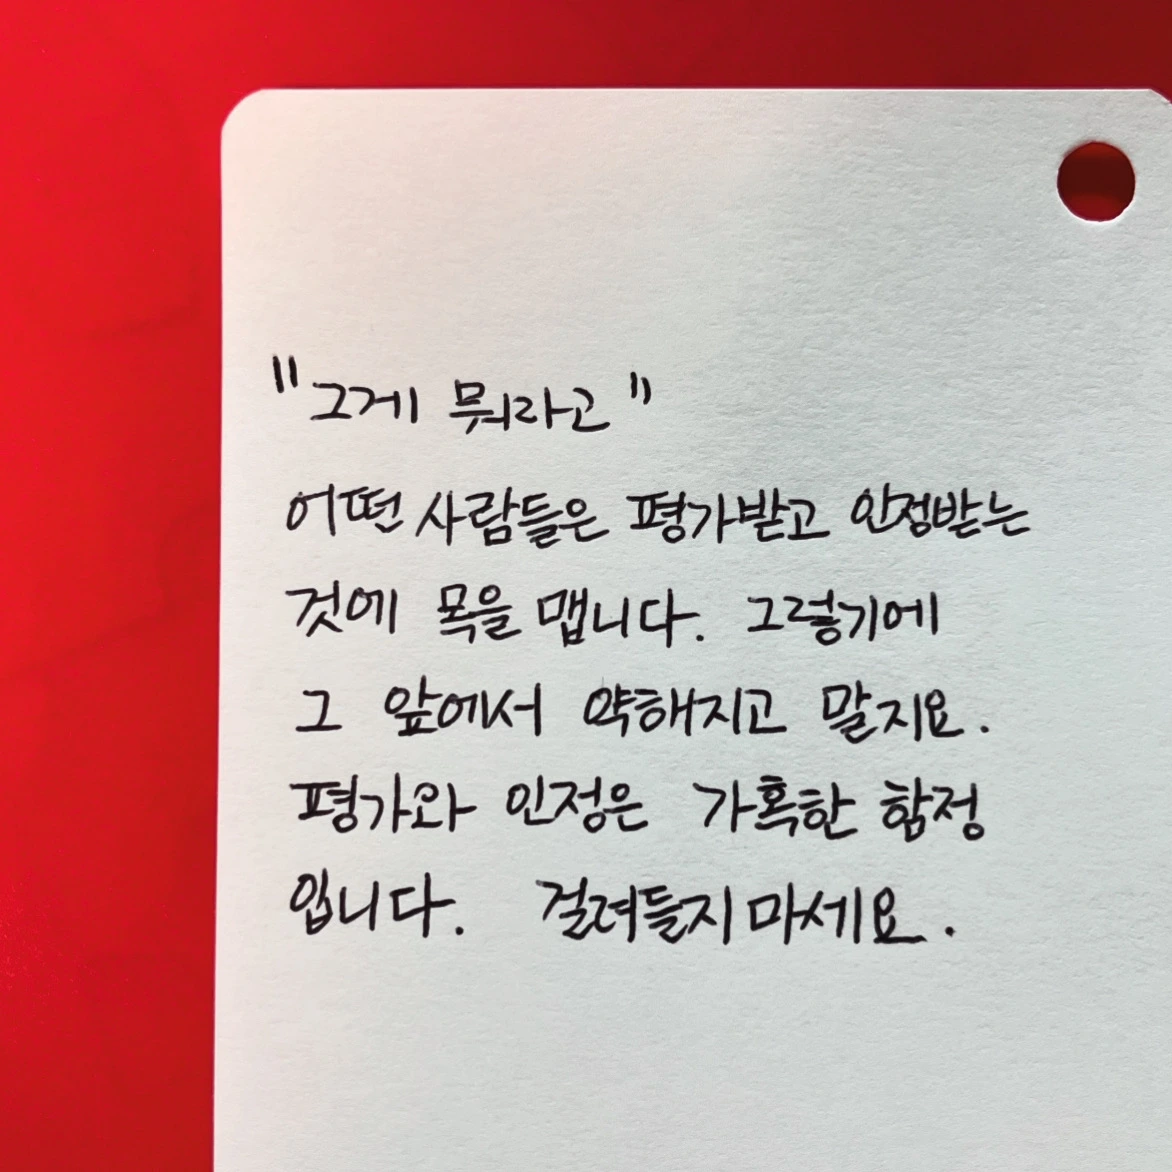 "그게 뭐라고"
어떤 사람들은 평가받고 인정받는
것에 목을 맵니다. 그렇기에
그 앞에서 약해지고 말지요.
평가와 인정은 가혹한 함정
입니다. 걸려들지 마세요.